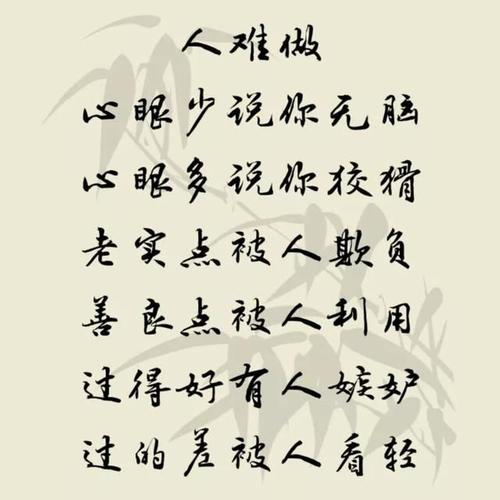 人难做
心眼少说你无脑
心眼多说你狡猾
老实点被人欺负
善良点被人利用
过得好有人嫉妒
过的差被人看轻